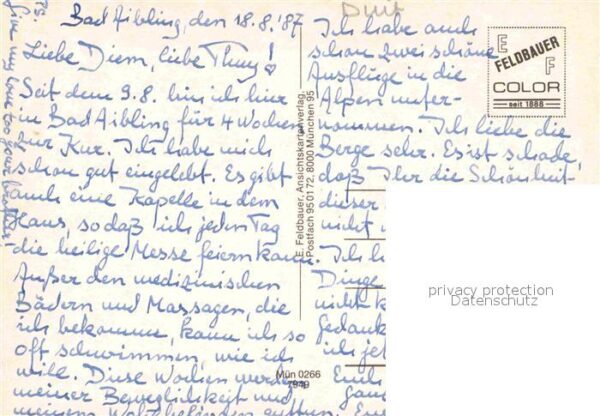 Bad Aibling, den 18.8.'87
Liebe Diem, liebe Thuy!
Seit dem 9.8. bin ich hier
in Bad Aibling für 4 Wochen
zur Kur. Ich habe mich
schon gut eingelebt. Es gibt
auch eine Kapelle in dem
Haus, so daß ich jeden Tag
die heilige Messe feiern kann.
Außer den medizinischen
Bädern und Massagen, die
ich bekomme, kann ich so
oft schwimmen, wie ich
will. Diese Wochen werden
meiner Beweglichkeit und
meinem Wohlbefinden guttun.
Ich habe auch
schon zwei schöne
Ausflüge in die
Alpen unter-
nommen. Ich liebe die
Berge sehr. Es ist schade,
daß Ihr die Schönheit
dieser
nicht
Ich h
Dinge
nicht k
Gedank
ich jet
Euch
ganz
Euer
P.S.
Give my love too your brother!
E. Feldbauer, Ansichtskartenverlag,
Postfach 95 01 72, 8000 München 95
Mün 0266
7949
E F
FELDBAUER
COLOR
seit 1888
privacy protection
Datenschutz